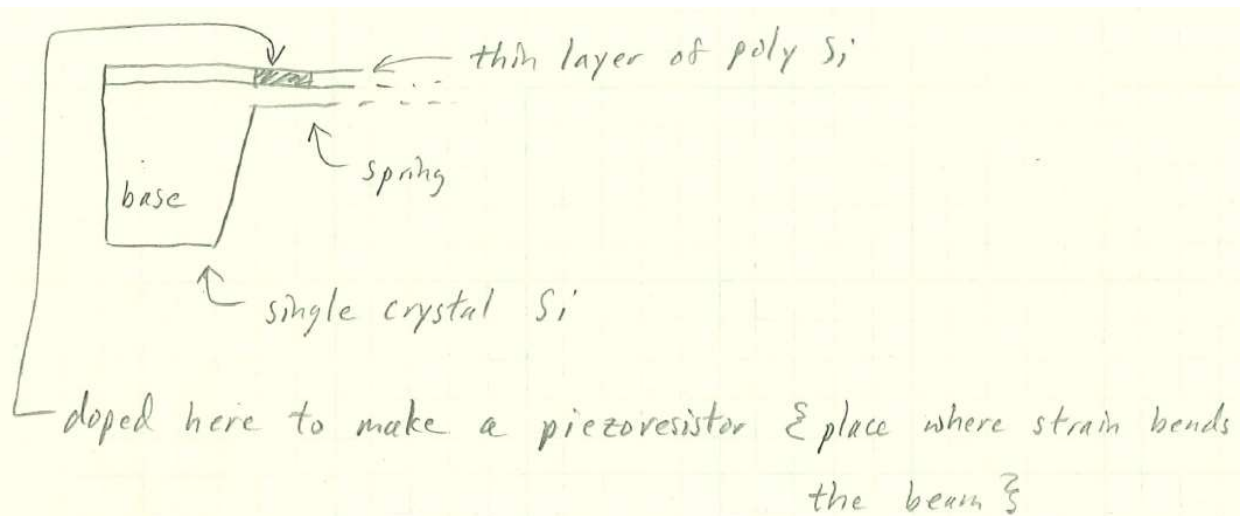 thin layer of poly Si
spring
base
single crystal Si
doped here to make a piezoresistor {place where strain bends
the beam}